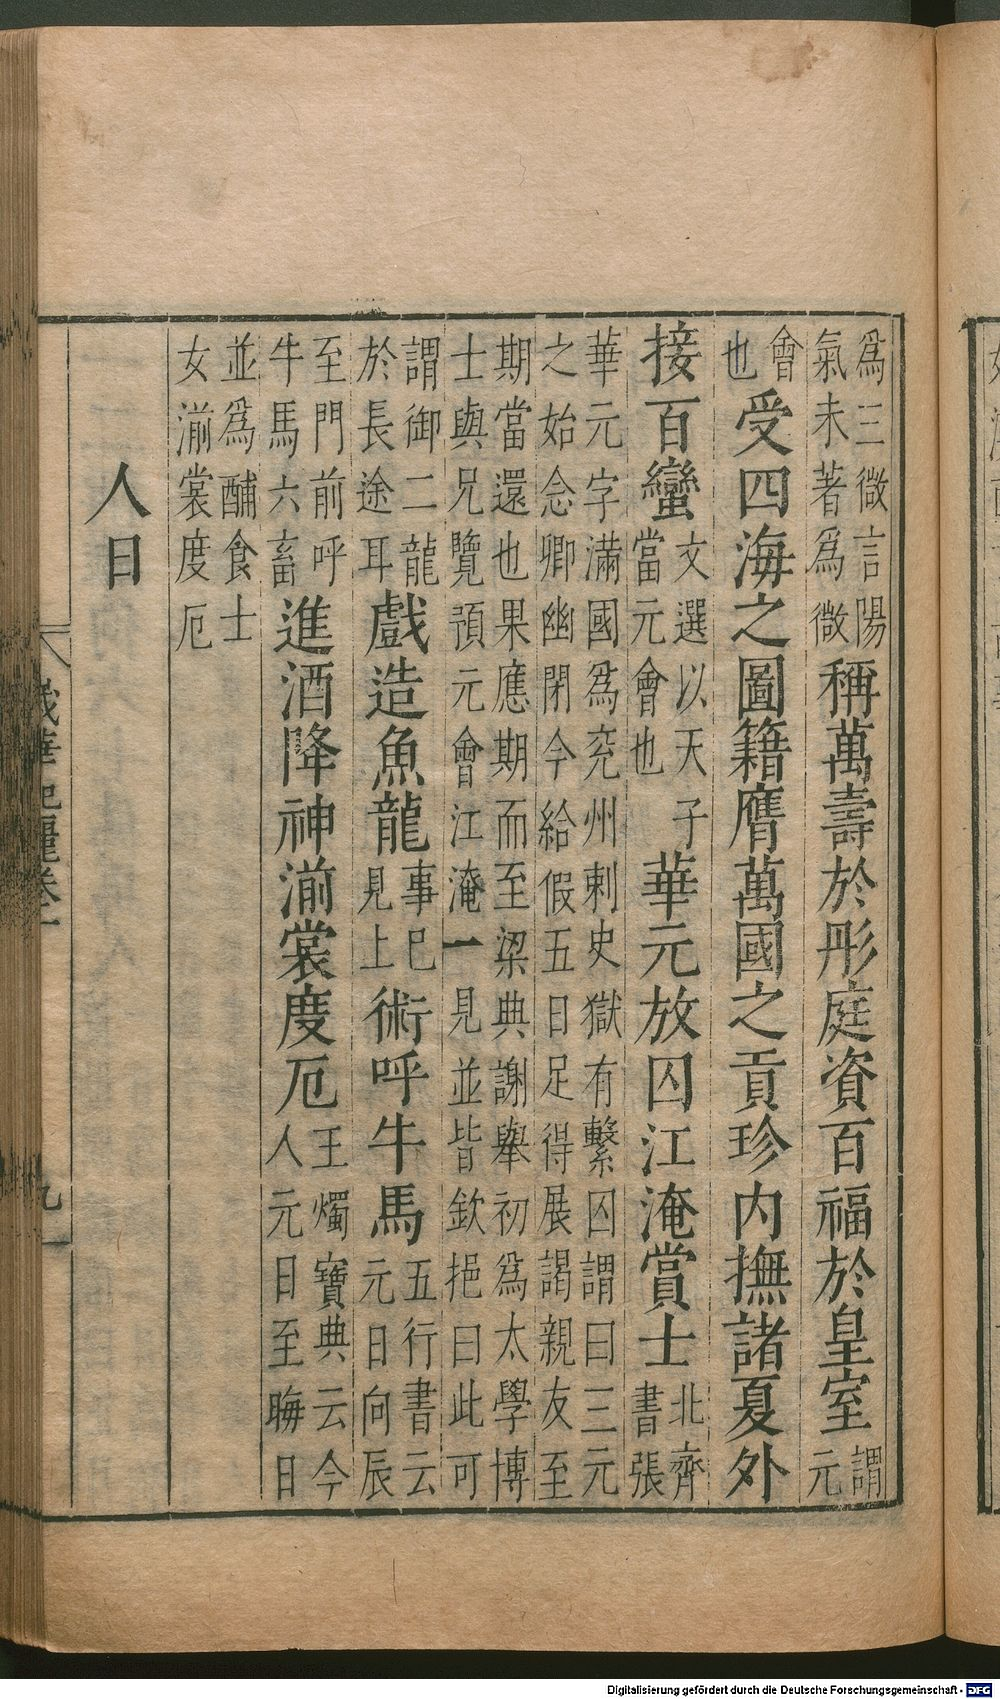 為三微言陽氣未著為微稱萬壽於彤庭資百福於皇室謂元
會也受四海之圖籍膺萬國之貢珍內撫諸夏外
接百蠻文選以天子當元會也華元放囚江淹賞士北齊書張
華元字滿國為兖州刺史獄有繫囚謂曰三元之始念卿幽閉今給假五日足得展謁親友至
期當還也果應期而至梁典謝舉初為太學博士與兄覽預元會江淹一見並皆欽挹曰此可
謂御二龍於長途耳戲造魚龍事已見上術呼牛馬五行書云元日向辰
至門前呼牛馬六畜進酒降神湔裳度厄王燭寶典云今人元日至晦日
並為酺食士女湔裳度厄
人日
歲華紀麗卷一 九
Digitalisierung gefördert durch die Deutsche Forschungsgemeinschaft - DFG